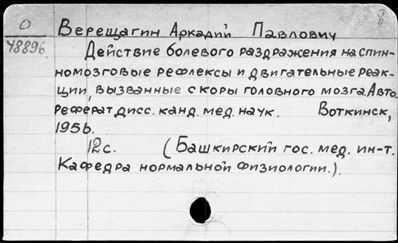 О
48896
Верещагин Аркадий Павлович
Действие болевого раздражения на спин-
номозговые рефлексы и двигательные реак-
ции, вызванные с коры головного мозга. Авто.
реферат дисс. канд. мед. наук. Воткинск,
1956.
12с. (Башкирский гос. мед. ин-т.
Кафедра нормальной физиологии.).